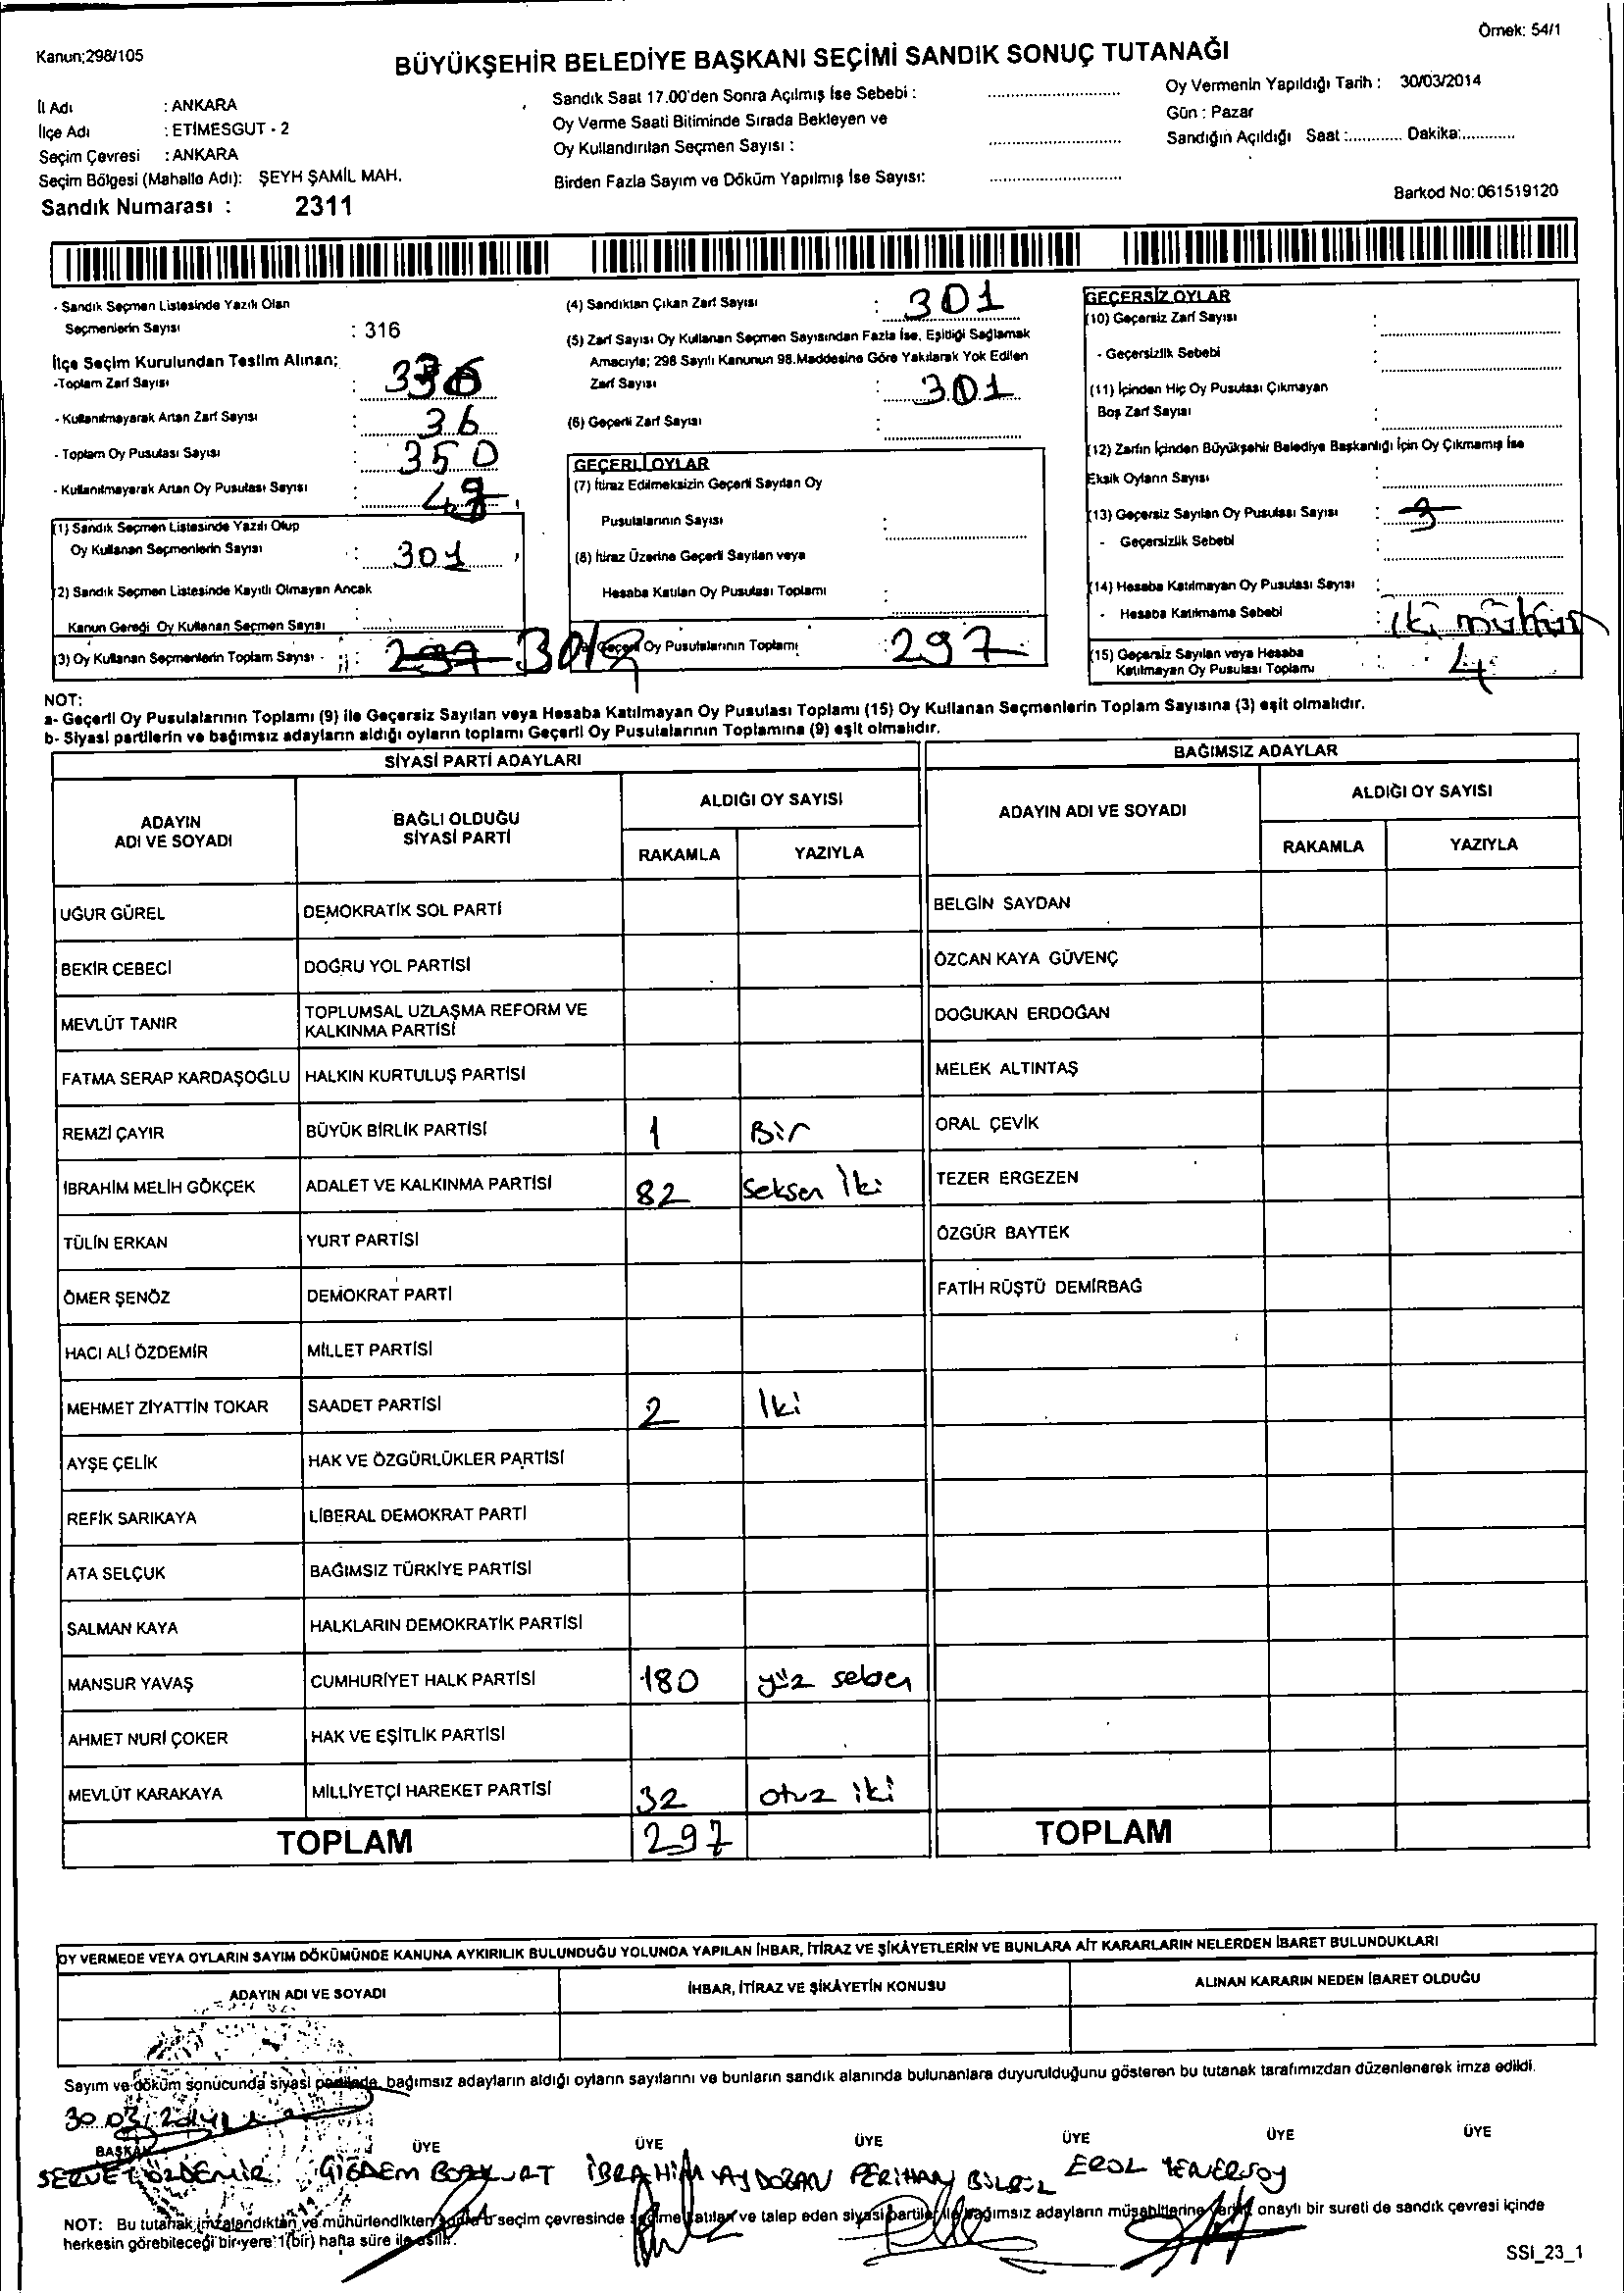 Kanun;298/105
Örnek: 54/1
BÜYÜKŞEHİR BELEDİYE BAŞKANI SEÇİMİ SANDIK SONUÇ TUTANAĞI
İl Adı : ANKARA
İlçe Adı : ETİMESGUT - 2
Seçim Çevresi : ANKARA
Seçim Bölgesi (Mahalle Adı): ŞEYH ŞAMİL MAH.
Sandık Numarası : 2311
Sandık Saat 17.00'den Sonra Açılmış İse Sebebi :
Oy Verme Saati Bitiminde Sırada Bekleyen ve
Oy Kullandırılan Seçmen Sayısı :
Birden Fazla Sayım ve Döküm Yapılmış İse Sayısı:
Oy Vermenin Yapıldığı Tarih : 30/03/2014
Gün : Pazar
Sandığın Açıldığı Saat :............ Dakika:............
Barkod No: 061519120
- Sandık Seçmen Listesinde Yazılı Olan
Seçmenlerin Sayısı : 316
İlçe Seçim Kurulundan Teslim Alınan;
-Toplam Zarf Sayısı :
- Kullanılmayarak Artan Zarf Sayısı : 36
- Toplam Oy Pusulası Sayısı : 350
- Kullanılmayarak Artan Oy Pusulası Sayısı :
(1) Sandık Seçmen Listesinde Yazılı Olup
Oy Kullanan Seçmenlerin Sayısı : 301
(2) Sandık Seçmen Listesinde Kayıtlı Olmayan Ancak
Kanun Gereği Oy Kullanan Seçmen Sayısı :
(3) Oy Kullanan Seçmenlerin Toplam Sayısı - : 297 301
(4) Sandıktan Çıkan Zarf Sayısı : 301
(5) Zarf Sayısı Oy Kullanan Seçmen Sayısından Fazla İse, Eşitliği Sağlamak
Amacıyla; 298 Sayılı Kanunun 98.Maddesine Göre Yakılarak Yok Edilen
Zarf Sayısı : 301
(6) Geçerli Zarf Sayısı :
GEÇERLİ OYLAR
(7) İtiraz Edilmeksizin Geçerli Sayılan Oy
Pusulalarının Sayısı :
(8) İtiraz Üzerine Geçerli Sayılan veya
Hesaba Katılan Oy Pusulası Toplamı :
Geçerli Oy Pusulalarının Toplamı : 297
GEÇERSİZ OYLAR
(10) Geçersiz Zarf Sayısı :
- Geçersizlik Sebebi :
(11) İçinden Hiç Oy Pusulası Çıkmayan
Boş Zarf Sayısı :
(12) Zarfın İçinden Büyükşehir Belediye Başkanlığı İçin Oy Çıkmamış İse
Eksik Oyların Sayısı
(13) Geçersiz Sayılan Oy Pusulası Sayısı : 3
- Geçersizlik Sebebi :
(14) Hesaba Katılmayan Oy Pusulası Sayısı :
- Hesaba Katılmama Sebebi : iki mühür
(15) Geçersiz Sayılan veya Hesaba
Katılmayan Oy Pusulası Toplamı : 4
NOT:
a- Geçerli Oy Pusulalarının Toplamı (9) ile Geçersiz Sayılan veya Hesaba Katılmayan Oy Pusulası Toplamı (15) Oy Kullanan Seçmenlerin Toplam Sayısına (3) eşit olmalıdır.
b- Siyasi partilerin ve bağımsız adayların aldığı oyların toplamı Geçerli Oy Pusulalarının Toplamına (9) eşit olmalıdır.
SİYASİ PARTİ ADAYLARI
ADAYIN
ADI VE SOYADI
BAĞLI OLDUĞU
SİYASİ PARTİ
ALDIĞI OY SAYISI
RAKAMLA YAZIYLA
UĞUR GÜREL DEMOKRATİK SOL PARTİ
BEKİR CEBECİ DOĞRU YOL PARTİSİ
MEVLÜT TANIR TOPLUMSAL UZLAŞMA REFORM VE
KALKINMA PARTİSİ
FATMA SERAP KARDAŞOĞLU HALKIN KURTULUŞ PARTİSİ
REMZİ ÇAYIR BÜYÜK BİRLİK PARTİSİ 1 Bir
İBRAHİM MELİH GÖKÇEK ADALET VE KALKINMA PARTİSİ 82 Seksen İki
TÜLİN ERKAN YURT PARTİSİ
ÖMER ŞENÖZ DEMOKRAT PARTİ
HACI ALİ ÖZDEMİR MİLLET PARTİSİ
MEHMET ZİYATTİN TOKAR SAADET PARTİSİ 2 İki
AYŞE ÇELİK HAK VE ÖZGÜRLÜKLER PARTİSİ
REFİK SARIKAYA LİBERAL DEMOKRAT PARTİ
ATA SELÇUK BAĞIMSIZ TÜRKİYE PARTİSİ
SALMAN KAYA HALKLARIN DEMOKRATİK PARTİSİ
MANSUR YAVAŞ CUMHURİYET HALK PARTİSİ 180 yüz seksen
AHMET NURİ ÇOKER HAK VE EŞİTLİK PARTİSİ
MEVLÜT KARAKAYA MİLLİYETÇİ HAREKET PARTİSİ 32 otuz iki
TOPLAM 297
BAĞIMSIZ ADAYLAR
ADAYIN ADI VE SOYADI
ALDIĞI OY SAYISI
RAKAMLA YAZIYLA
BELGİN SAYDAN
ÖZCAN KAYA GÜVENÇ
DOĞUKAN ERDOĞAN
MELEK ALTINTAŞ
ORAL ÇEVİK
TEZER ERGEZEN
ÖZGÜR BAYTEK
FATİH RÜŞTÜ DEMİRBAĞ
TOPLAM
OY VERMEDE VEYA OYLARIN SAYIM DÖKÜMÜNDE KANUNA AYKIRILIK BULUNDUĞU YOLUNDA YAPILAN İHBAR, İTİRAZ VE ŞİKÂYETLERİN VE BUNLARA AİT KARARLARIN NELERDEN İBARET BULUNDUKLARI
ADAYIN ADI VE SOYADI
İHBAR, İTİRAZ VE ŞİKÂYETİN KONUSU
ALINAN KARARIN NEDEN İBARET OLDUĞU
Sayım ve döküm sonucunda siyasi partilerle, bağımsız adayların aldığı oyların sayılarını ve bunların sandık alanında bulunanlara duyurulduğunu gösteren bu tutanak tarafımızdan düzenlenerek imza edildi.
30.03/2014
BAŞKAN ÜYE ÜYE ÜYE ÜYE ÜYE ÜYE
SERVET ÖZDEMİR ÇİĞDEM BOZKURT İBRAHİM AYDOĞAN PERİHAN EROL YENERSOY
NOT: Bu tutanak imzalandıktan ve mühürlendikten sonra seçim çevresinde seçime katılan ve talep eden siyasi partiler ile bağımsız adayların müşahitlerine onaylı bir sureti de sandık çevresi içinde
herkesin görebileceği bir yere 1(bir) hafta süre ile asılır.
SSİ_23_1